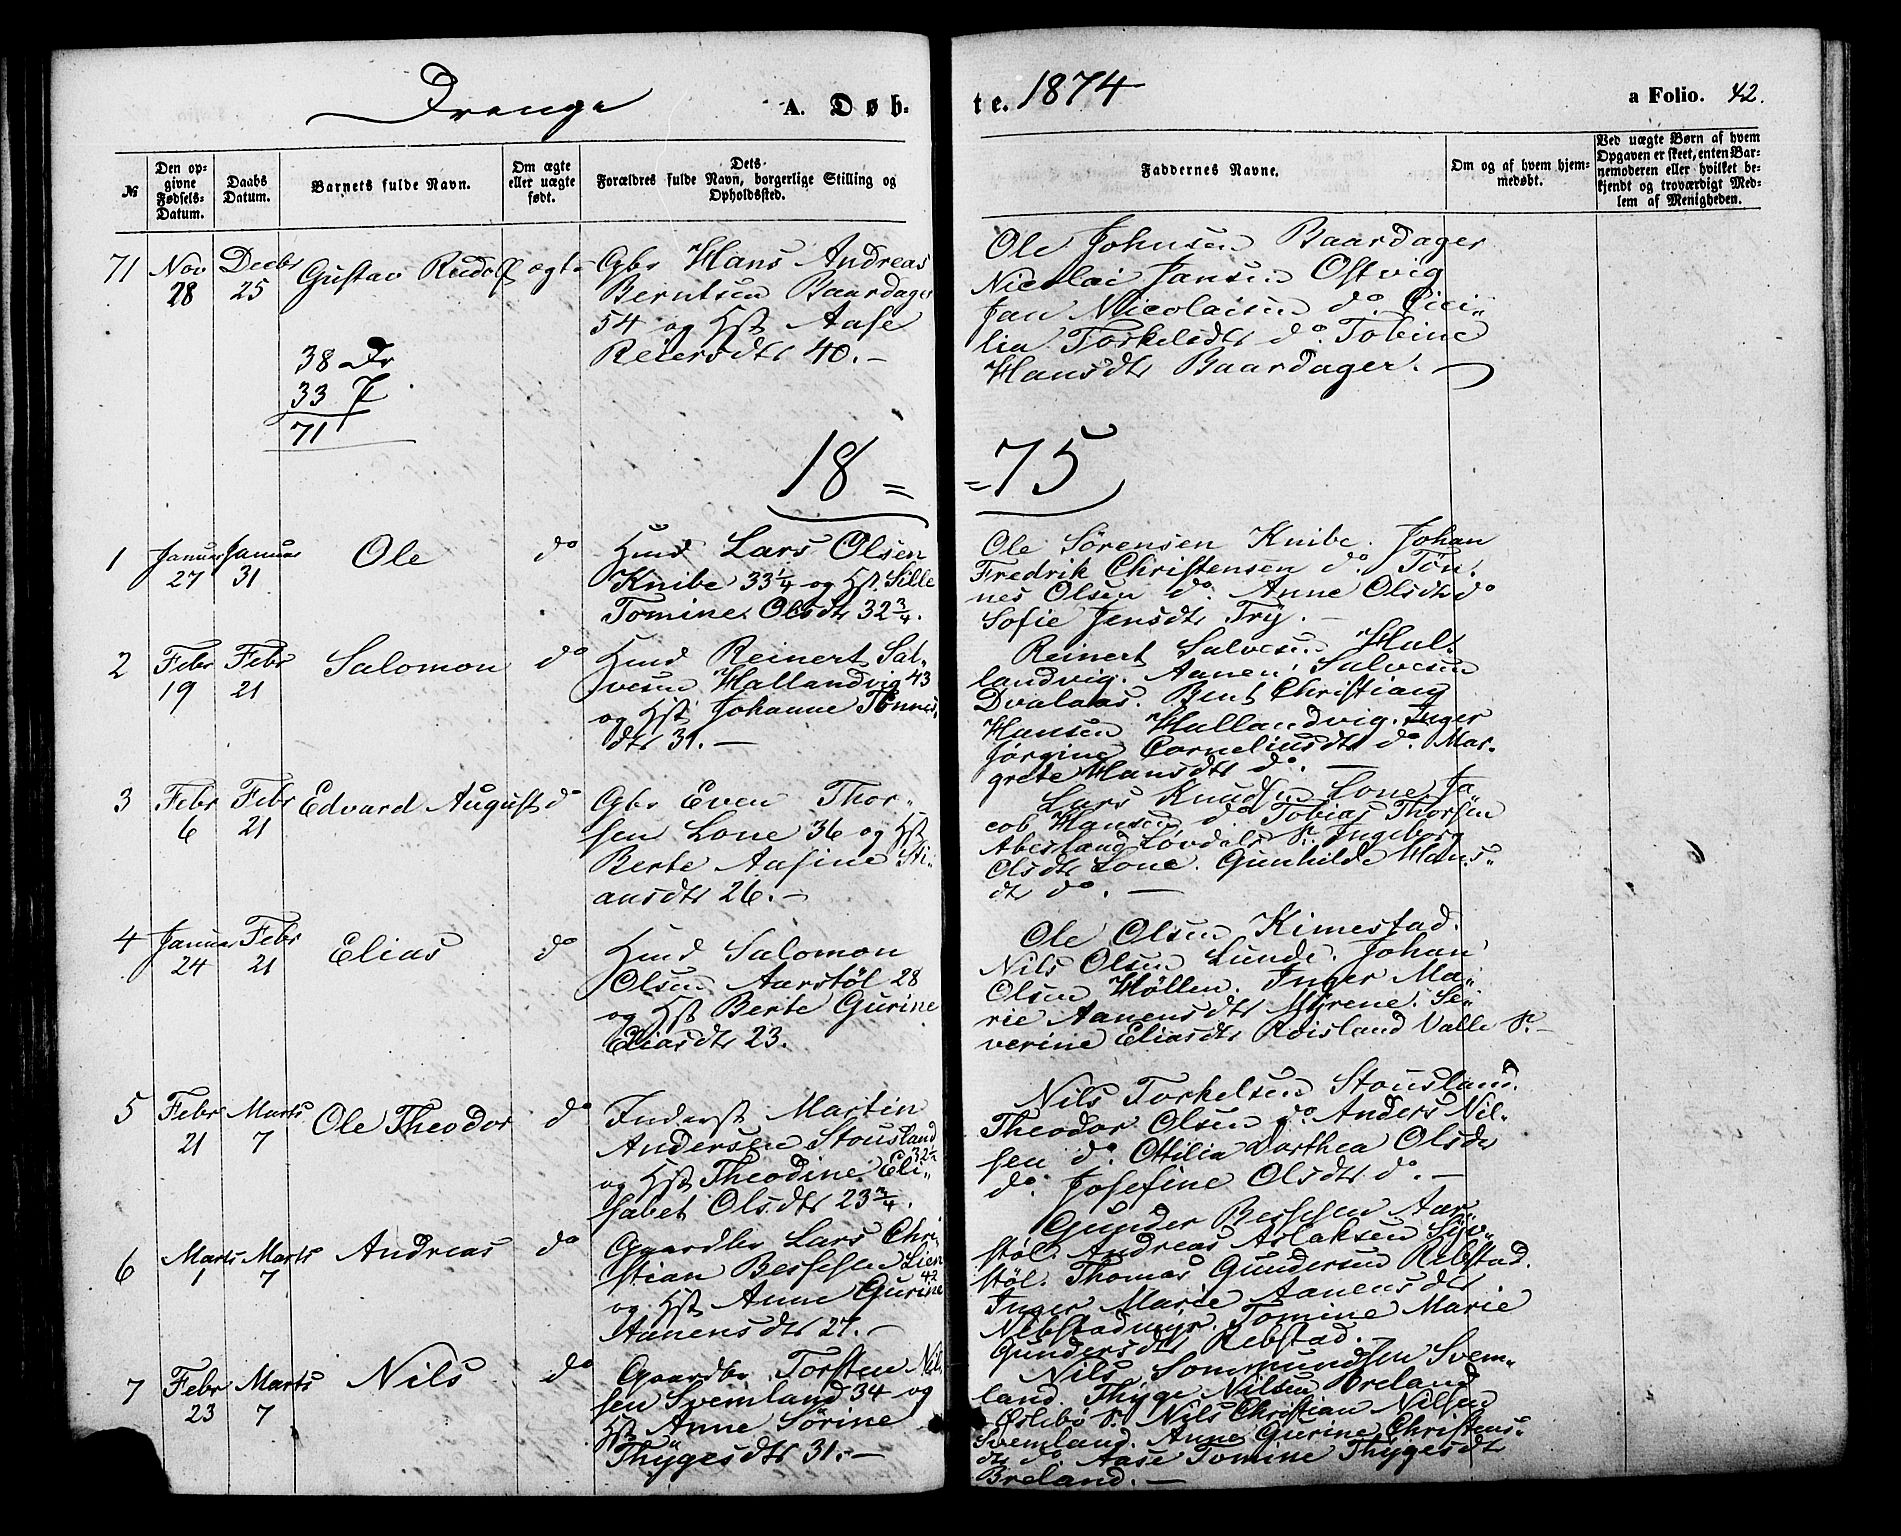 Drenge A. Døb-
te. 1874 a Folio. 42.
№
Den op-
givne
Fødsels-
Datum.
Daabs
Datum.
Barnets fulde Navn.
Om ægte
eller uægte
født.
Dets
Forældres fulde Navn, borgerlige Stilling og
Opholdssted.
Faddernes Navne.
Om og af hvem hjem-
medøbt.
Ved uægte Børn af hvem
Opgaven er skeet, enten Bar-
nemoderen eller hvilket be-
kjendt og troværdigt Med-
lem af Menigheden.
71 Nov 28 Decbr 25 Gustav Rudolf ægte
Gbr Hans Andreas
Berntsen Baardager
54 og Hst Aase
Reiersdtr 40. —
Ole Johnsen Baardager
Nicolai Jansen Ostvig
Jan Nicolaisen do. Ceci-
lia Torkelsdtr do. Tobine
Hansdtr Baardager. —
38 Dr
33 P
71
18 =
= 75
1 Januar 27 Januar 31 Ole do
Hmd Lars Olsen
Knibe 33 1/4 og Hst. Sille
Tomine Olsdtr 32 3/4.
Ole Sörensen Knibe. Johan
Fredrik Christensen do. Tön-
nes Olsen do. Anne Olsdtr do
Sofie Jensdtr Try. —
2 Febr 19 Febr 21 Salomon do
Hmd Reinert Sal-
vesen Hallandvig 43
og Hst Johanne Tönnes-
dtr 31. —
Reinert Salvesen Hal-
landvig. Aanen Salvesen
Dvalaas. Bent Christian
Hansen Hallandvig. Inger
Jörgine Corneliusdtr do. Mar-
grete Hansdtr do. —
3 Febr 6 Febr 21 Edvard August do
Gbr Even Thor-
sen Lone 36 og Hst
Berte Aasine Sti-
ansdtr 26. —
Lars Knudsen Lone Ja-
cob Hansen do. Tobias Thorsen
Abesland Lövdals S. Ingeborg
Olsdtr Lone. Gunhilde Hans-
dtr do. —
4 Januar 24 Febr 21 Elias do
Hmd Salomon
Olsen Aarstöl 28
og Hst Berte Gurine
Eliasdtr 23.
Ole Olsen Kimestad.
Nils Olsen Lunde. Johan
Olsen Höllen. Inger Ma-
rie Aanensdtr Myrene. Se-
verine Eliasdtr Röisland Valle S. —
5 Febr 21 Marts 7 Ole Theodor do
Inderst Martin
Andersen Stousland
32 1/2
og Hst Theodine Eli-
sabet Olsdtr 23 3/4.
Nils Torkelsen Stousland.
Theodor Olsen do. Anders Nil-
sen do. Ottilia Dorthea Olsdtr
do. Josefine Olsdtr do. —
6 Marts 1 Marts 7 Andreas do
Gaardbr Lars Chri-
stian Bessesen Lien
42
og Hst Anne Gurine
Aanensdtr 27. —
Gunder Bessesen Aar-
stöl. Andreas Aslaksen
stöl. Thomas Gundersen Rebstad.
Inger Marie Aanensdtr
Tomine Marie
Gundersdtr Rebstad.
7 Febr 23 Marts 7 Nils do
Gaardbr Torsten Nil-
sen Svemland 34 og
Hst Anne Sörine
Thygesdtr 31. —
Nils Sommundsen Svem-
land. Thyge Nilsen Breland
Öslebö S. Nils Christian Nilsen
Svemland. Anne Gurine Christens-
dtr do. Aase Tomine Thygesdtr
Breland. —